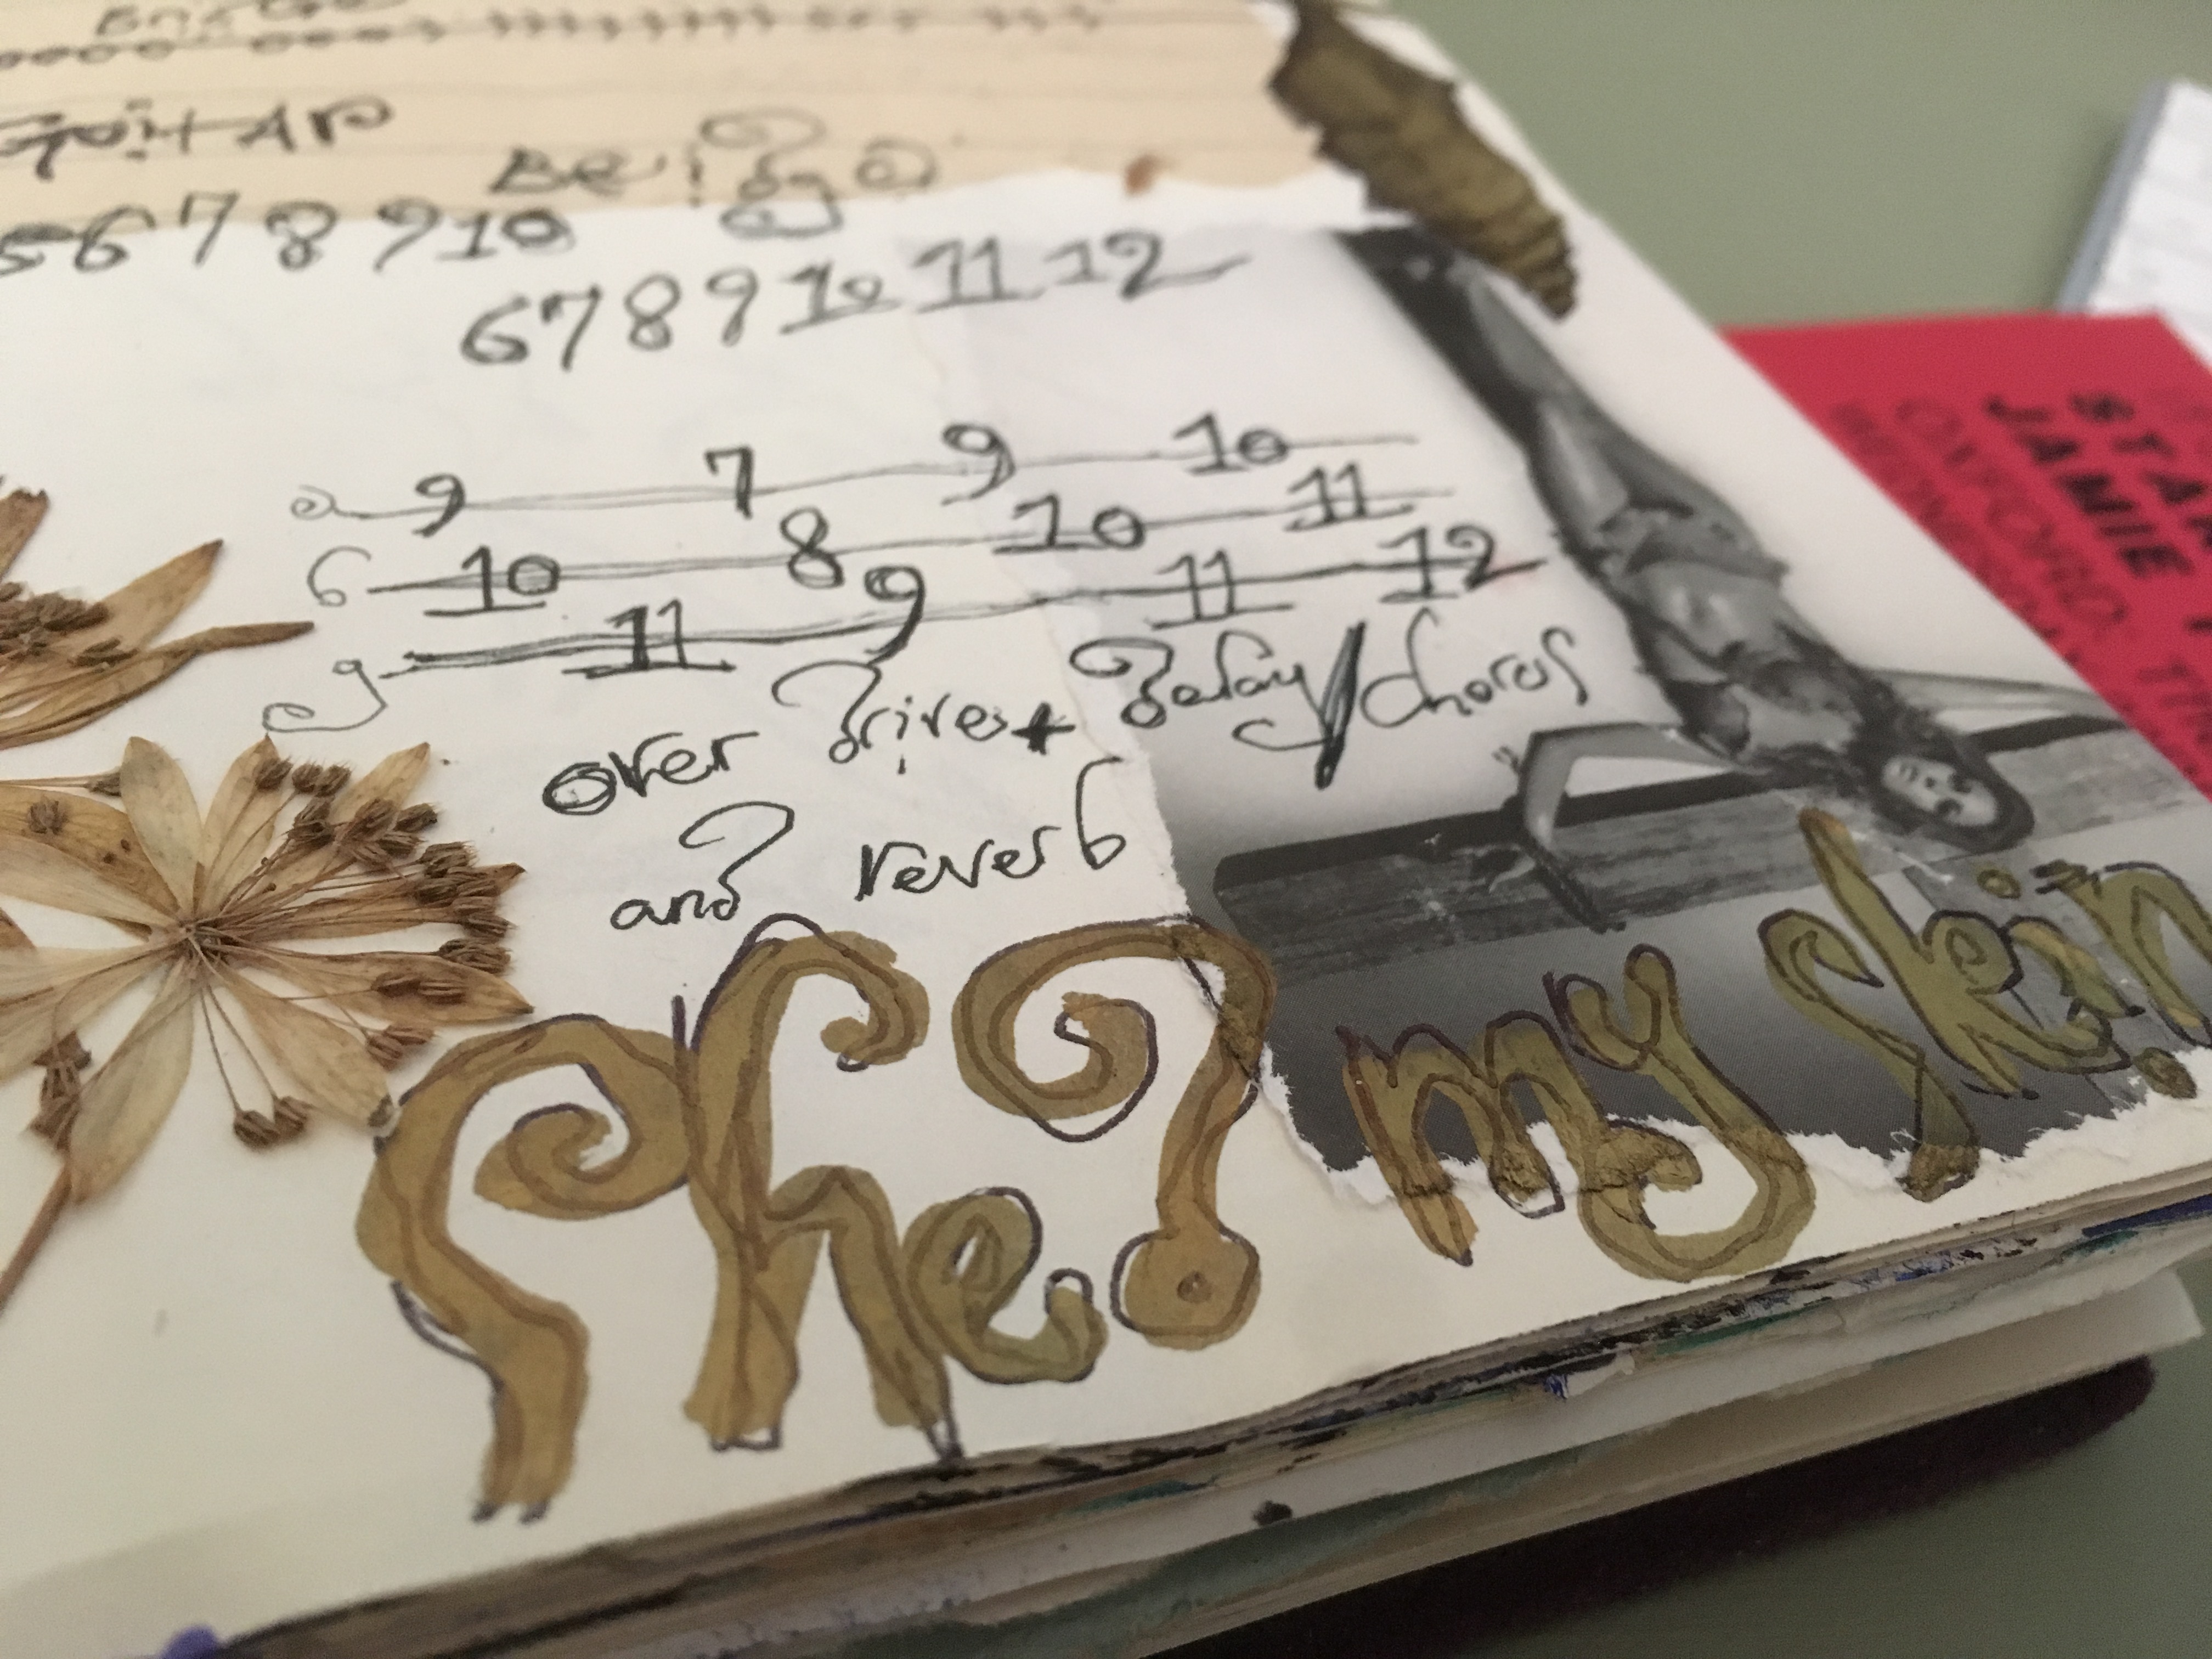 GuitAr
Bridge
5 6 7 8 9 10
6 7 8 9 10 11 12
e 9 7 9 10
b 10 8 10 11
g 11 9 11 12
over Drive + Delay/chorus
and reverb
Shed my skin
STAR
JAMIE T
OXFORD